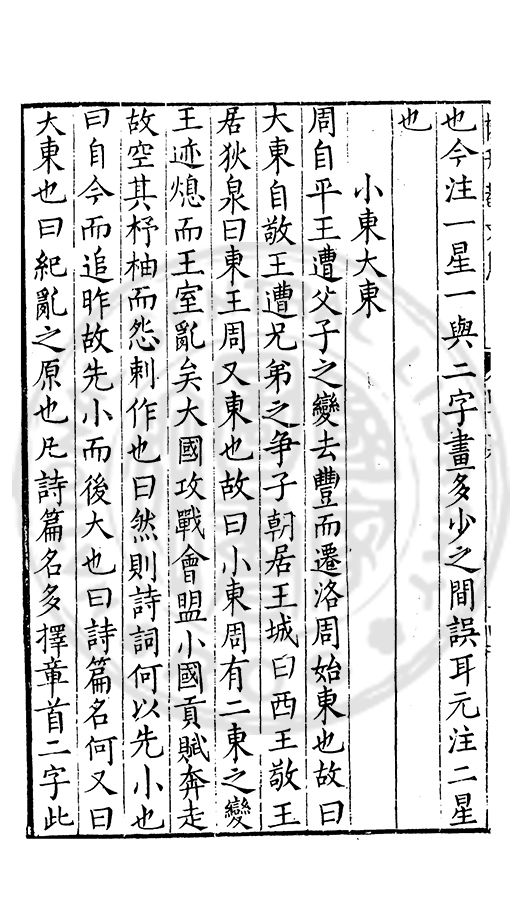 也今注一星一與二字畫多少之間誤耳元注二星
也
小東大東
周自平王遭父子之變去豐而遷洛周始東也故曰
大東自敬王遭兄弟之争子朝居王城曰西王敬王
居狄泉曰東王周又東也故曰小東周有二東之變
王迹熄而王室亂矣大國攻戰會盟小國貢賦奔走
故空其杼柚而怨刺作也曰然則詩詞何以先小也
曰自今而追昨故先小而後大也曰詩篇名何又曰
大東也曰紀亂之原也凡詩篇名多擇章首二字此